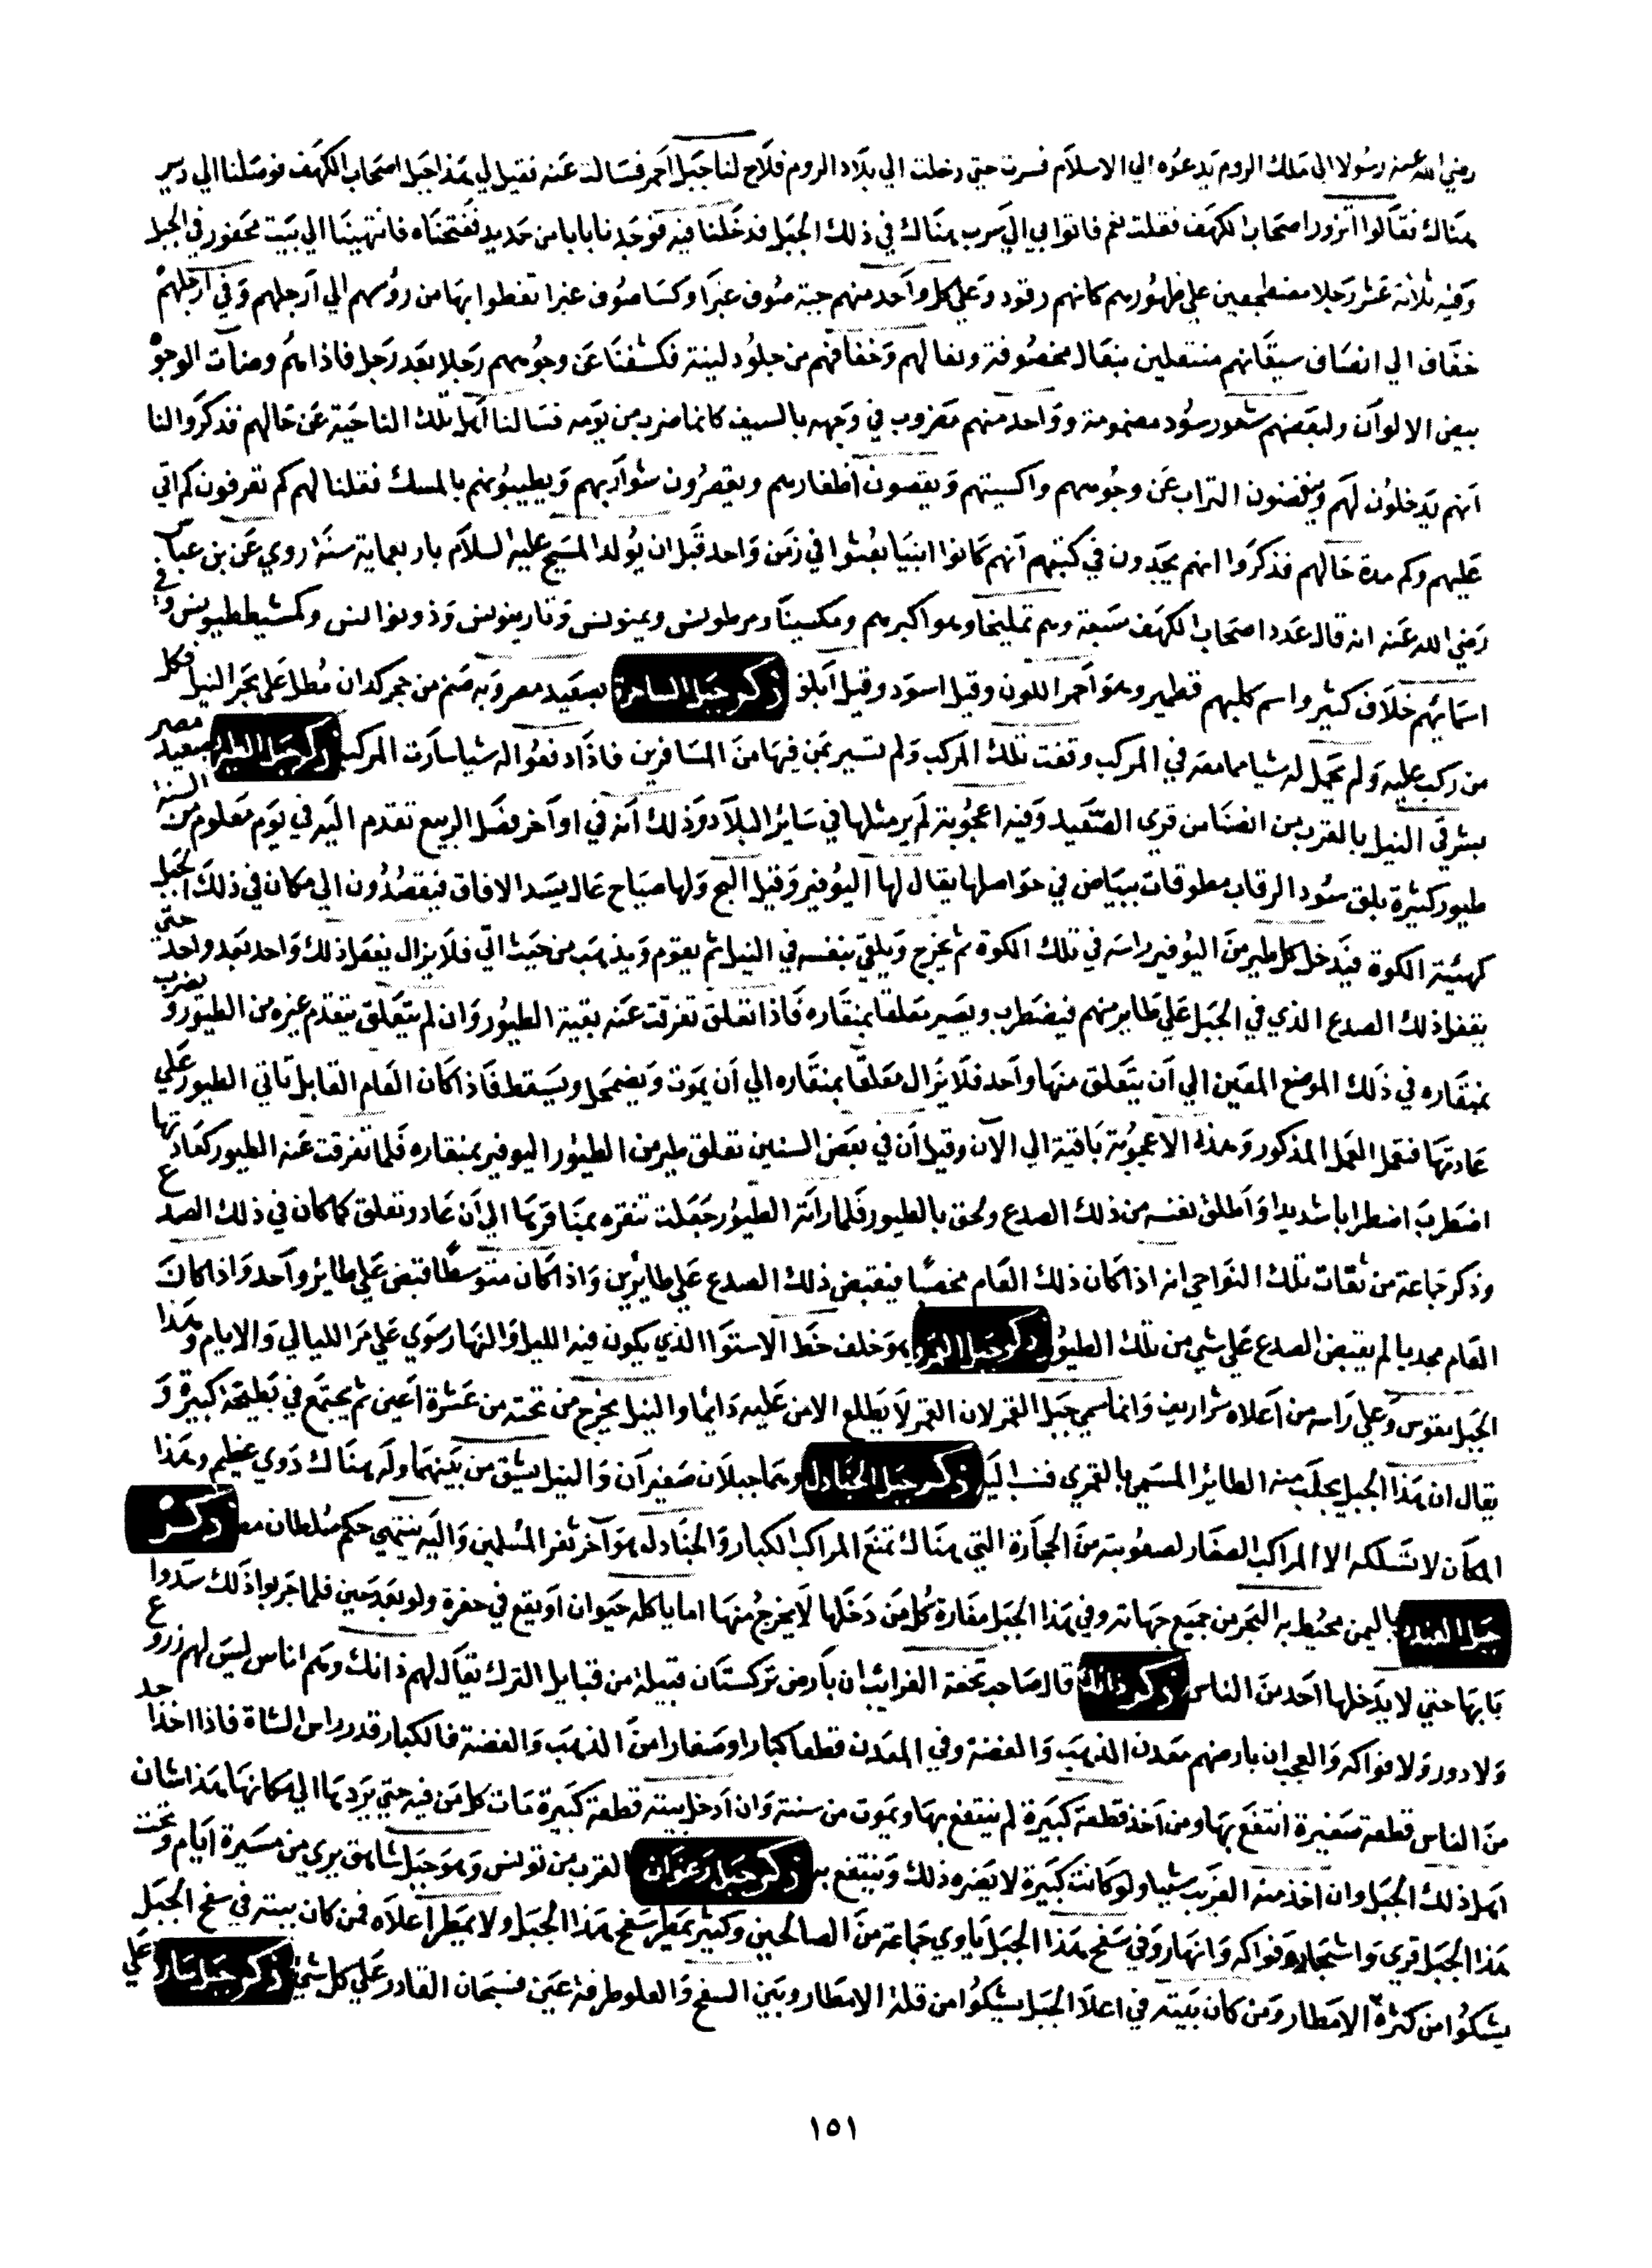 رضي الله عنه رسولا الي ملك الروم يدعوه الي الاسلام فسرت حتي دخلت الي بلاد الروم فلاح لنا جبل احمر فسالت عنه فقيل لي هذا جبل اصحاب الكهف فوصلنا الي دير
هناك فقالوا اتزور اصحاب الكهف فقلت نعم فاتوا بي الي سرب هناك في ذلك الجبل فدخلنا فيه فوجدنا بابا من حديد ففتحناه فانتهينا الي بيت محفور في الجبل
وفيه ثلاثة عشر رجلا مضطجعين علي ظهورهم كانهم رقود وعلي كل واحد منهم جبة صوف غبرا وكسا صوف غبرا تغطوا بها من روسهم الي ارجلهم وفي ارجلهم
خفاف الي انصاف سيقانهم منتعلين بنعال مخصوفة ونعالهم وخفافهم من جلود لينة فكشفنا عن وجوههم رجلا بعد رجل فاذا هم وضات الوجوه
بيض الالوان ولبعضهم شعور سود مضمومة وواحد منهم مضروب في وجهه بالسيف كانما ضرب من يومه فسالنا اهل تلك الناحية عن حالهم فذكروا لنا
انهم يدخلون لهم وينفضون التراب عن وجوههم واكسيتهم ويقصون اظفارهم ويقصرون شواربهم ويطيبونهم بالمسك فقلنا لهم كم تعرفون كم اتي
عليهم وكم مدة حالهم فذكروا انهم يجدون في كتبهم انهم كانوا انبيا بعثوا في زمن واحد قبل ان يولد المسيح عليه السلام باربعماية سنة روي عن بن عباس
رضي الله عنه انه قال عدد اصحاب الكهف سبعة وهم تمليخا وهو اكبرهم ومكسينا ومرطونس وينونس وذونوانس وكشيططيونس وفي
اسمائهم خلاف كثير واسم كلبهم قطمير وهو احمر اللون وقيل اسود وقيل ابلق ذكر جبل الساحرة بصعيد مصر وبه صنم من حجر كدان مطل علي بحر النيل فكل
من ركب عليه ولم يحمل له شيا مما معه في المركب وقفت تلك المركب ولم تسير بمن فيها من المسافرين فاذا دفعوا له شيا سارت المركب ذكر جبل الطير بصعيد مصر
بشرقي النيل بالقرب من انصنا من قري الصعيد وفيه اعجوبة لم ير مثلها في سائر البلاد وذلك انه في اواخر فصل الربيع تقدم اليه في يوم معلوم من السنة
طيور كثيرة بلق سود الرقاب مطوقات ببياض في حواصلها يقال لها اليوفير وقيل البج ولها صياح عال يسد الافاق فيقصدون الي مكان في ذلك الجبل
كهيئة الكوة فيدخل كل طير من اليوفير راسه في تلك الكوة ثم يخرج ويلقي بنفسه في النيل ثم يعوم ويذهب من حيث اتي فلا يزال يفعل ذلك واحد بعد واحد حتي
يقفل ذلك الصدع الذي في الجبل علي طاير منهم فيضطرب ويصير معلقا بمنقاره فاذا تعلق تفرقت عنه بقية الطيور وان لم يتعلق يتقدم غيره من الطيور ويضرب
بمنقاره في ذلك الموضع المعين الي ان يتعلق منها واحد فلا يزال معلقا بمنقاره الي ان يموت ويضمحل ويسقط فاذا كان العام القابل تاتي الطيور علي
عادتها فتعمل العمل المذكور وهذه الاعجوبة باقية الي الآن وقيل ان في بعض السنين تعلق طير من الطيور اليوفير بمنقاره فلما تفرقت عنه الطيور كعادتها
اضطرب اضطرابا شديدا واطلق نفسه من ذلك الصدع ولحق بالطيور فلما راته الطيور جعلت تنقره بمناقرها الي ان عاد وتعلق كما كان في ذلك الصدع
وذكر جماعة من ثقات تلك النواحي انه اذا كان ذلك العام مخصبا فيقبض ذلك الصدع علي طايرين واذا كان متوسطا قبض علي طائر واحد واذا كان
العام مجدبا لم يقبض الصدع علي شي من تلك الطيور ذكر جبل القمر هو خلف خط الاستوا الذي يكون فيه الليل والنهار سوي علي مر الليالي والايام وهذا
الجبل مقوس وعلي راسه من اعلاه شراريف وانما سمي جبل القمر لان القمر لا يطلع الا من عليه دائما والنيل يخرج من تحته من عشرة اعين ثم يجتمع في بطيحة كبيرة و
يقال ان هذا الجبل يجلب منه الطائر المسمي بالقمري فنسب اليه ذكر جبل الجنادل وهما جبلان صغيران والنيل يشق من بينهما وله هناك دوي عظيم وهذا
المكان لا تسلكه الا المراكب الصغار لصعوبته من الحجارة التي هناك تمنع المراكب الكبار والجنادله هو آخر ثغر المسلمين واليه ينتهي حكم سلطان مصر ذكر
باليمن محيط به البحر من جميع جهاته وفي هذا الجبل مغارة كل من دخلها لا يخرج منها اما ياكله حيوان او يقع في حفرة ولو بعد حين فلما جربوا ذلك سدوا
بابها حتي لا يدخلها احد من الناس ذكر ذانك قال صاحب تحفة الغرائب ان بارض تركستان قبيلة من قبايل الترك يقال لهم ذانك وهم اناس ليس لهم زروع
ولا دور ولا فواكه والعجب ان بارضهم معدن الذهب والفضة وفي المعدن قطعا كبارا وصغارا من الذهب والفضة فالكبار قدر راس الشاة فاذا اخذ احد
من الناس قطعة صغيرة انتفع بها ومن اخذ قطعة كبيرة لم ينتفع بها ويموت من سنته وان ادخل بيته قطعة كبيرة مات كل من فيه حتي يردها الي مكانها هذا شان
اهل ذلك الجبل وان اخذ منه الغريب شيا ولو كانت كبيرة لا يضره ذلك وينتفع به ذكر جبل زغوان القرب من تونس وهو جبل شاهق يري من مسيرة ايام وتحت
هذا الجبل قري واشجار وفواكه وانهار وفي سفح هذا الجبل ياوي جماعة من الصالحين وكثير يمطر سفح هذا الجبل ولا يمطر اعلاه فمن كان بيته في سفح الجبل
يشكوا من كثرة الامطار ومن كان بيته في اعلا الجبل يشكوا من قلة الامطار وبين السفح والعلو طرفة عين فسبحان القادر علي كل شي ذكر جبل علي
١٥١